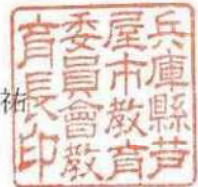 兵庫縣芦
屋市教育
委員會教
育長印
祐